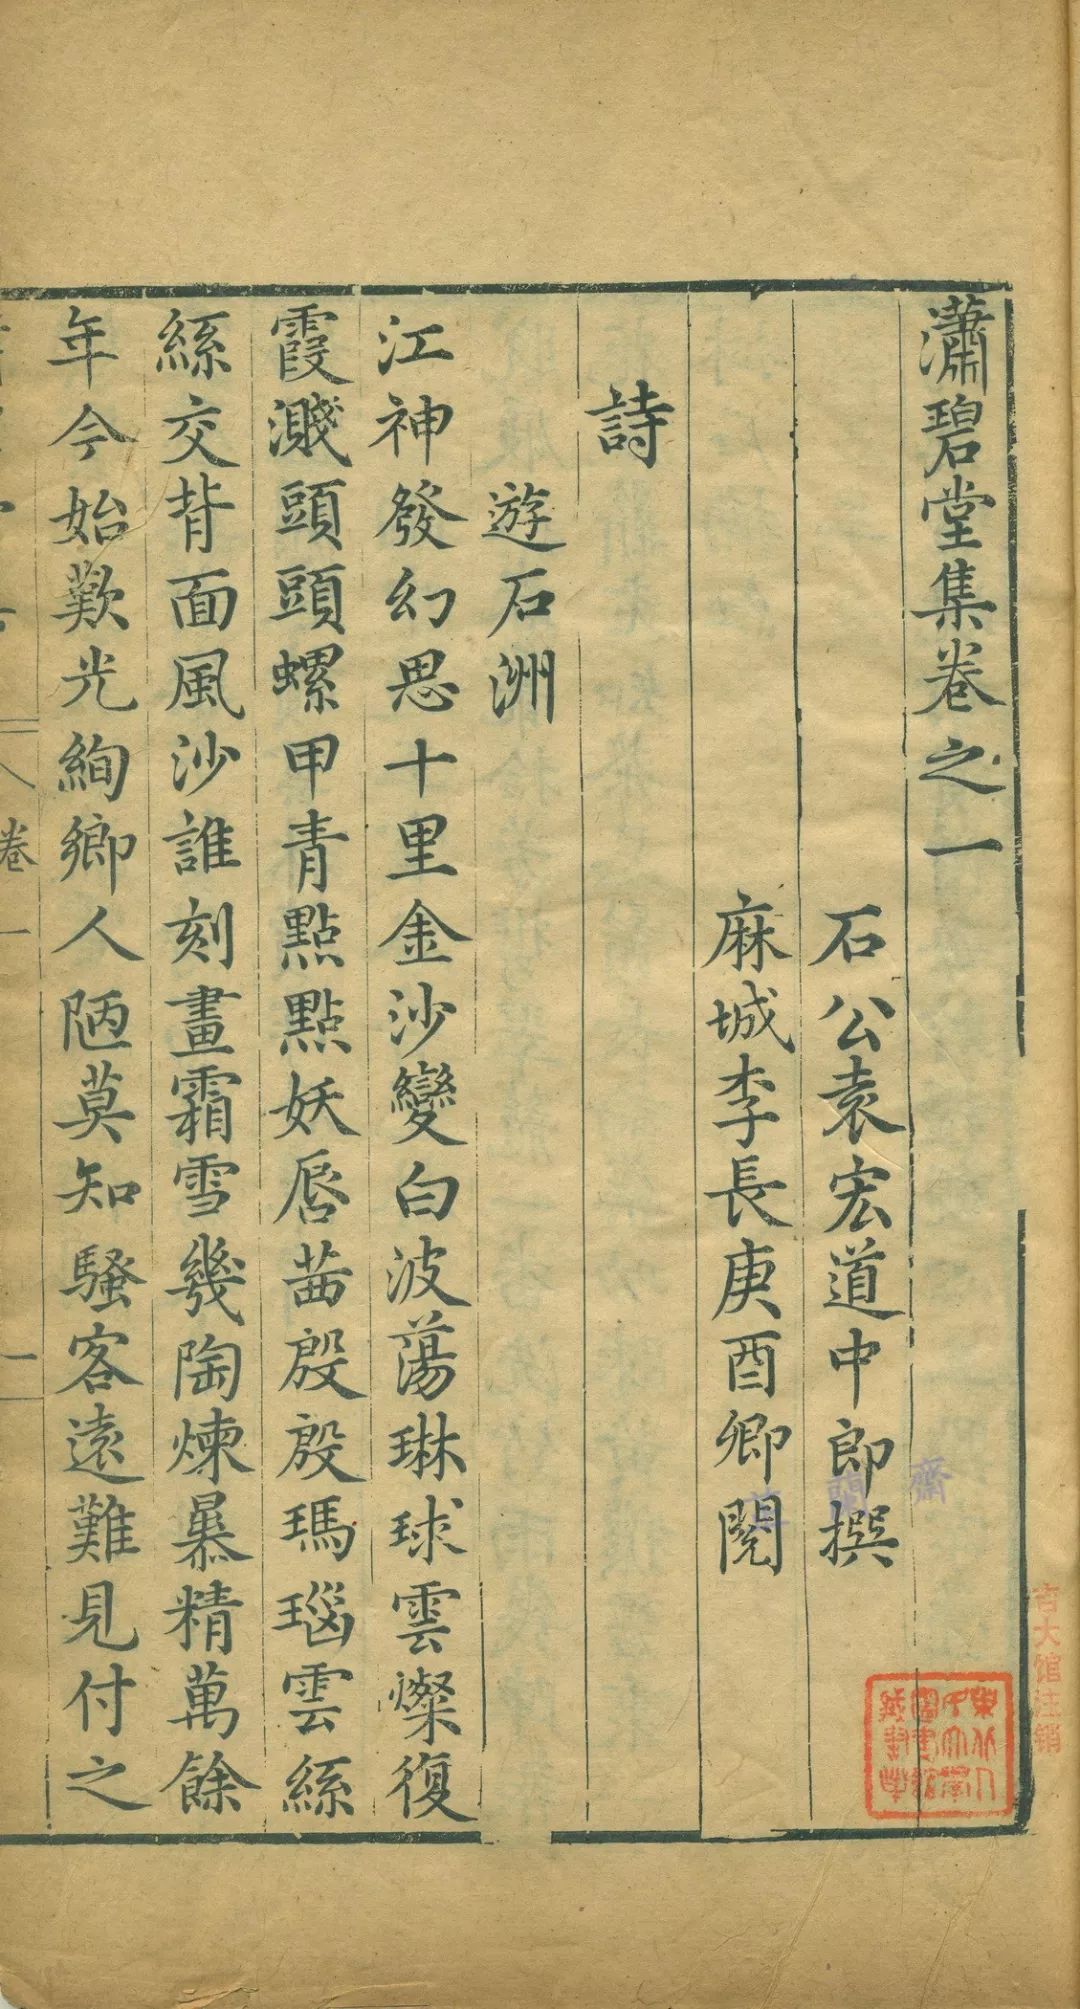 瀟碧堂集卷之一
石公袁宏道中郎撰
麻城李長庚酉卿閱
詩
遊石洲
江神發幻思十里金沙變白波蕩琳球雲燦復
霞濺頭頭螺甲青點點妖唇茜殷殷瑪瑙雲絲
絲交背面風沙誰刻畫霜雪幾陶煉暴精萬餘
年今始歎光絢鄉人陋莫知騷客遠難見付之
卷一
一
齋
蘭
吉大馆注销
東北人民大學圖書館藏書印